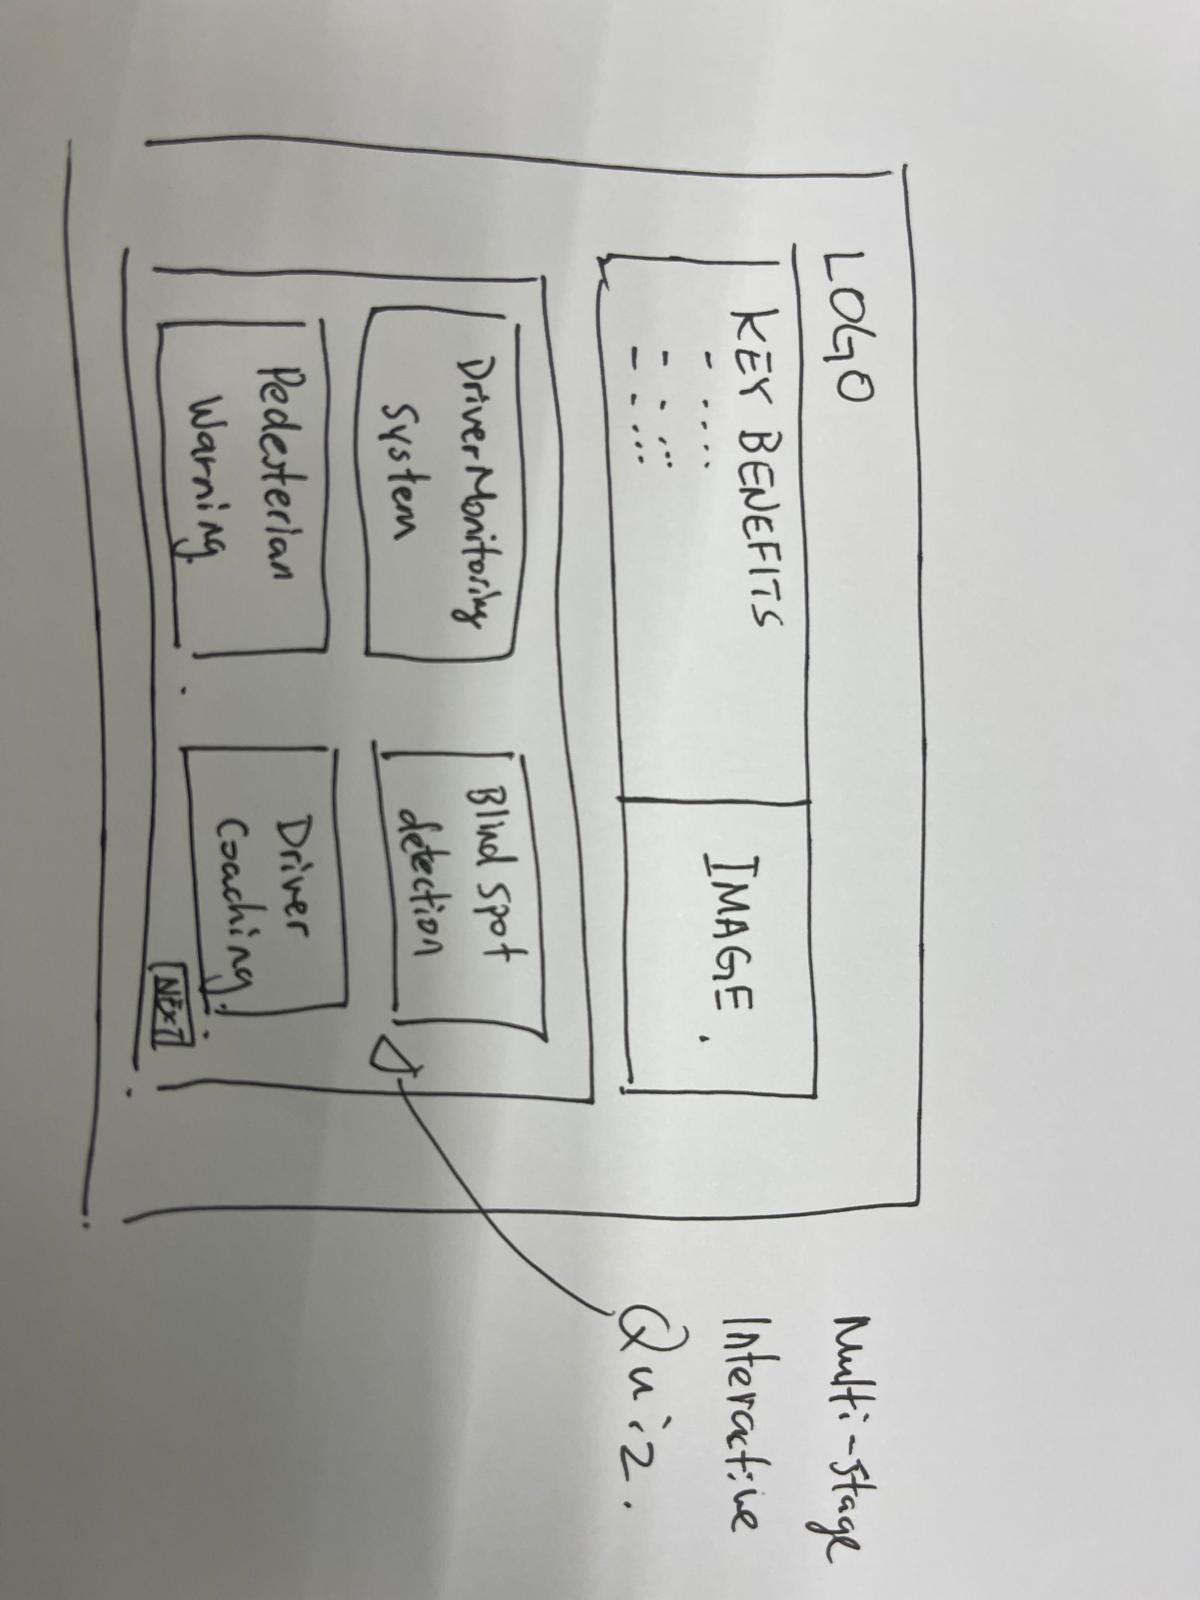 LOGO
KEY BENEFITS
IMAGE.
Driver Monitoring
System
Blind spot
detection
Pedesterian
Warning
Driver
Coaching
NEXT
Multi-stage
Interactive
Quiz.